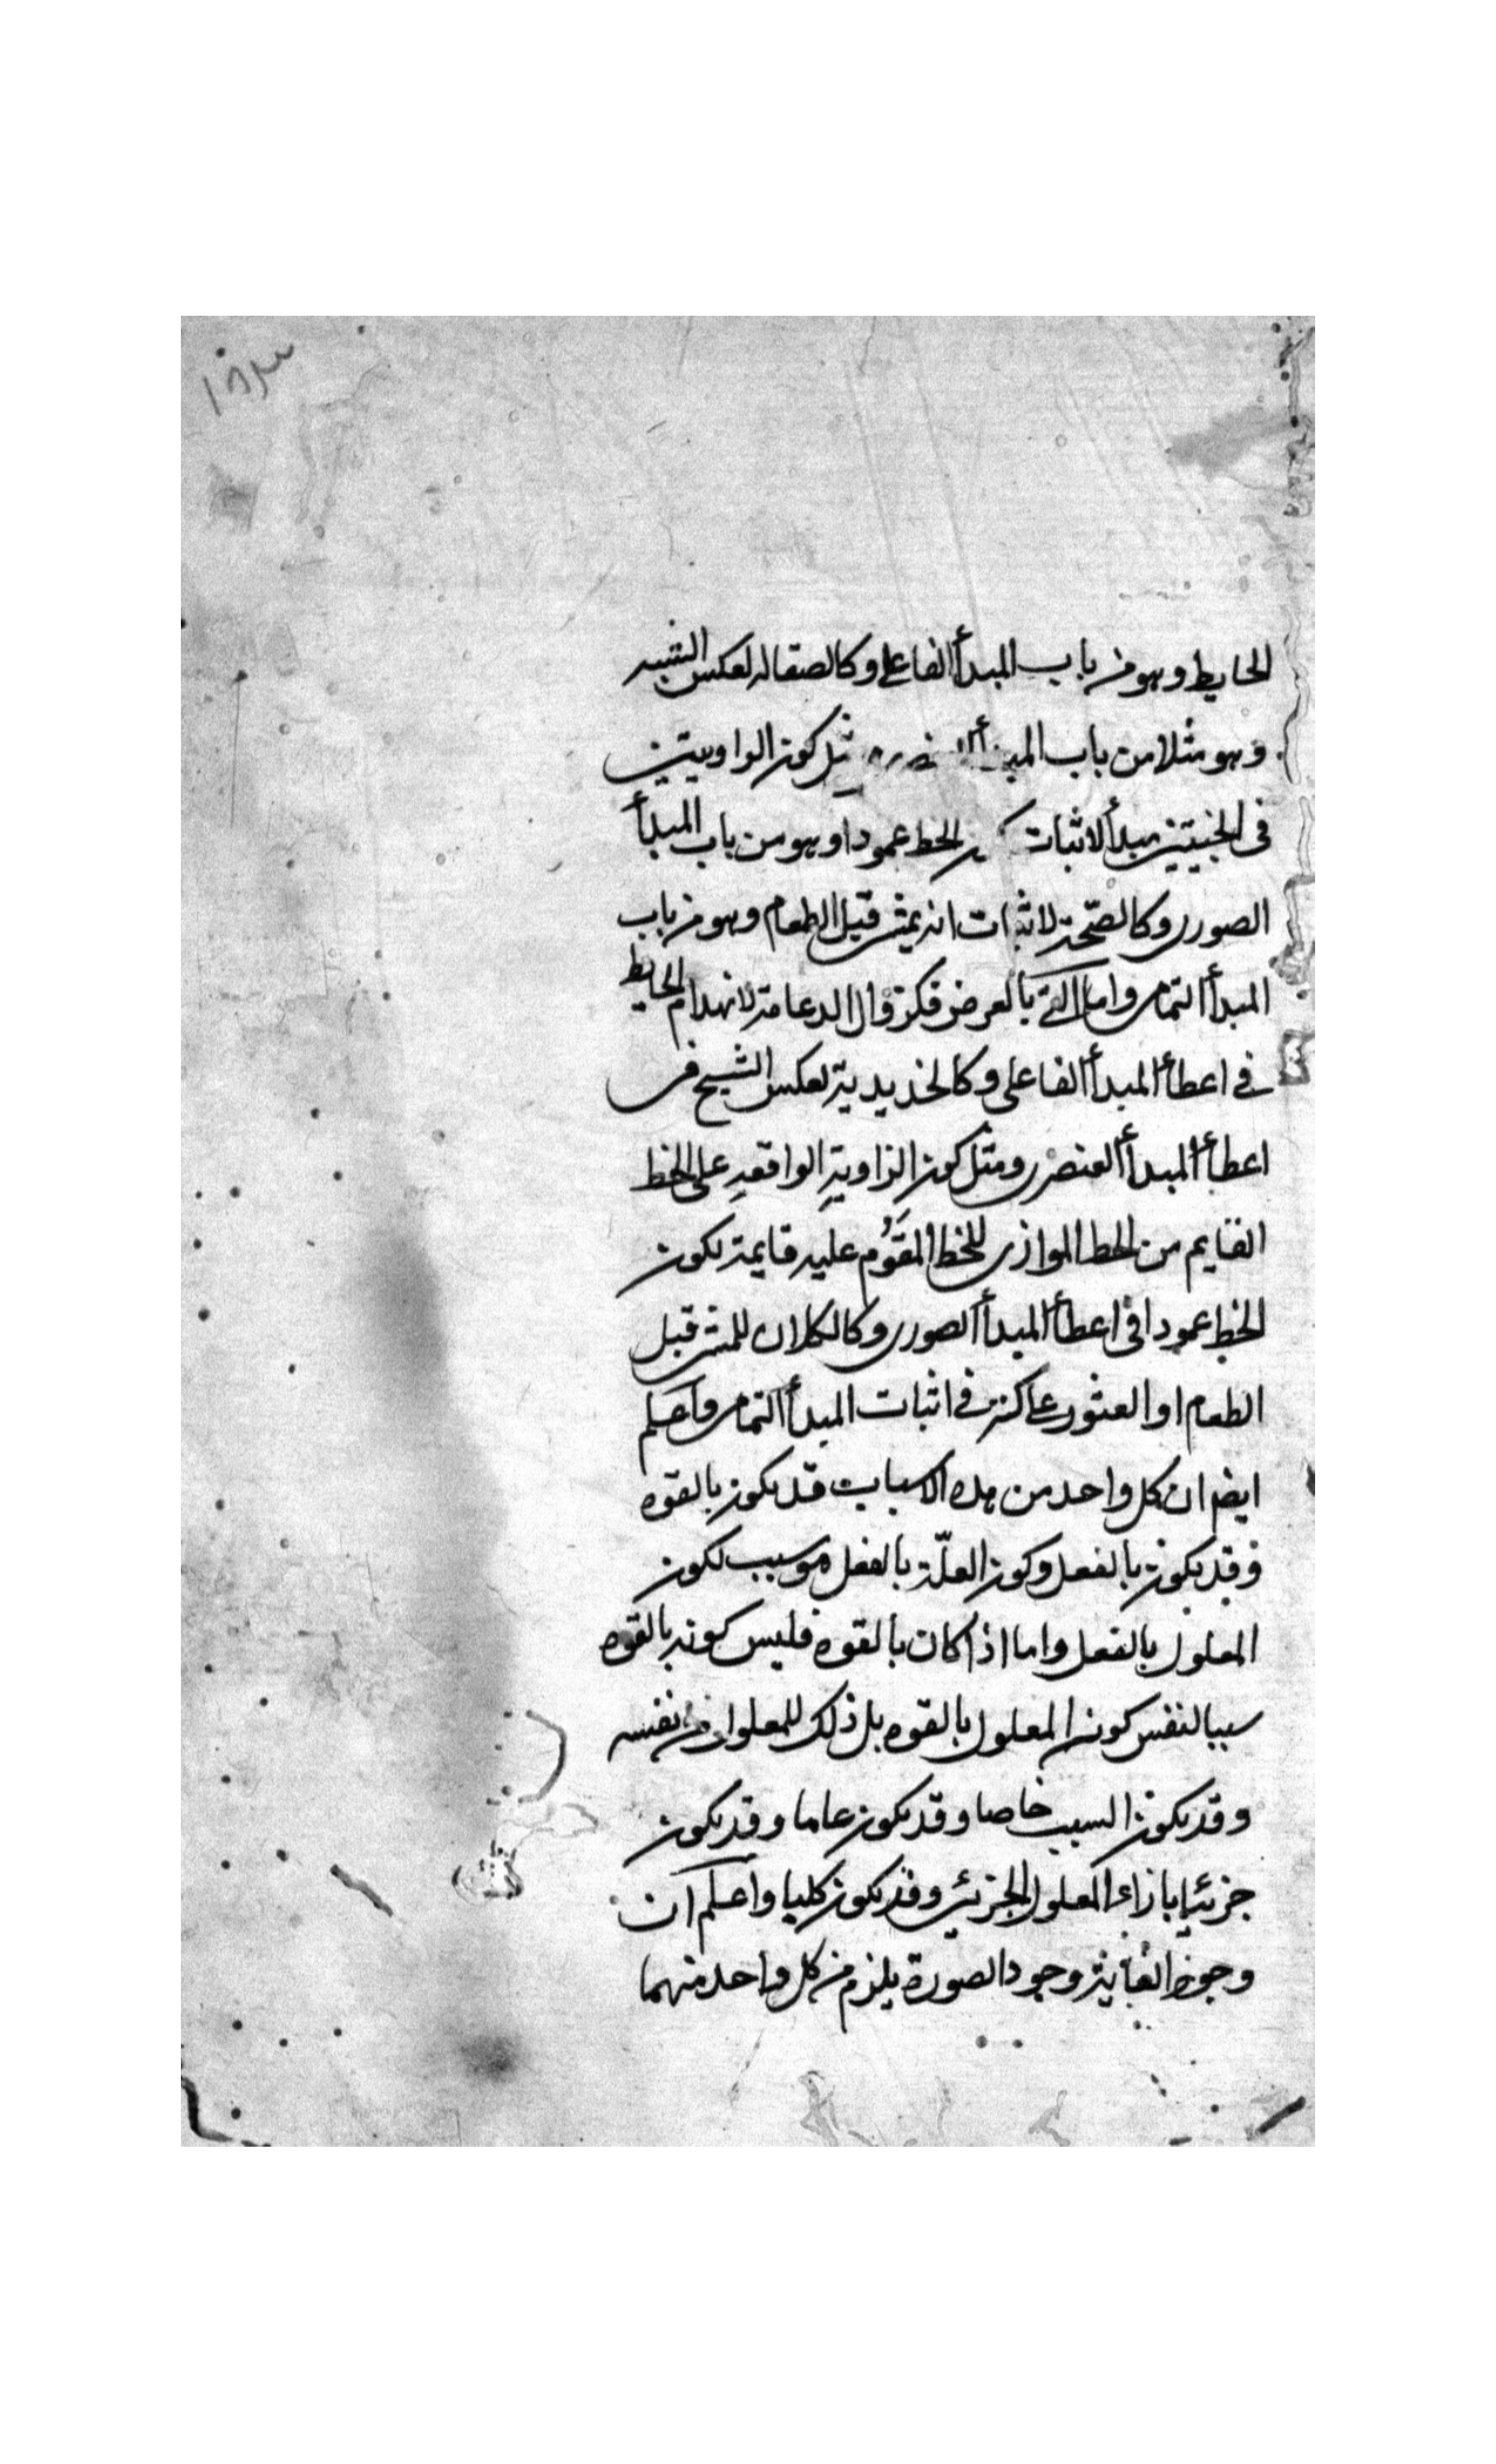 الحايط وهو من باب المبدأ الفاعلى وكالصقاله لعكس الشبح
وهو مثلا من باب المبدأ مثل كون الزاويتين
فى الجنبتين مبدأ لاثبات كون الخط عمودا وهو من باب المبدأ
الصورى وكالصّحة لاثبات انه يمشى قبل الطعام وهو من باب
المبدأ التمامى واما التى بالعرض فكزوال الدعامة لانهدام الحايط
فى اعطأ المبدأ الفاعلى وكالحديدية لعكس الشبح فى
اعطأ المبدأ العنصرى ومثل كون الزاوية الواقعه على الخط
القايم من الخط الموازى للخط المقوم عليه قايمة لكون
الخط عمودا فى اعطأ المبدأ الصورى وكالكلال للمشى قبل
الطعام او العثور على كنز فى اثبات المبدأ التمامى واعلم
ايضا ان كل واحد من هذه الاسباب قد يكون بالقوه
وقد يكون بالفعل وكون العلّة بالفعل هو سبب لكون
المعلول بالفعل واما اذا كان بالقوه فليس كونه بالقوه
سببا لنفس كون المعلول بالقوه بل ذلك للمعلول من نفسه
وقد يكون السبب خاصا وقد يكون عاما وقد يكون
جزئيا بازاء المعلول الجزئى وقد يكون كليا واعلم ان
وجود الغاية وجود الصورة يلزم من كل واحد منهما